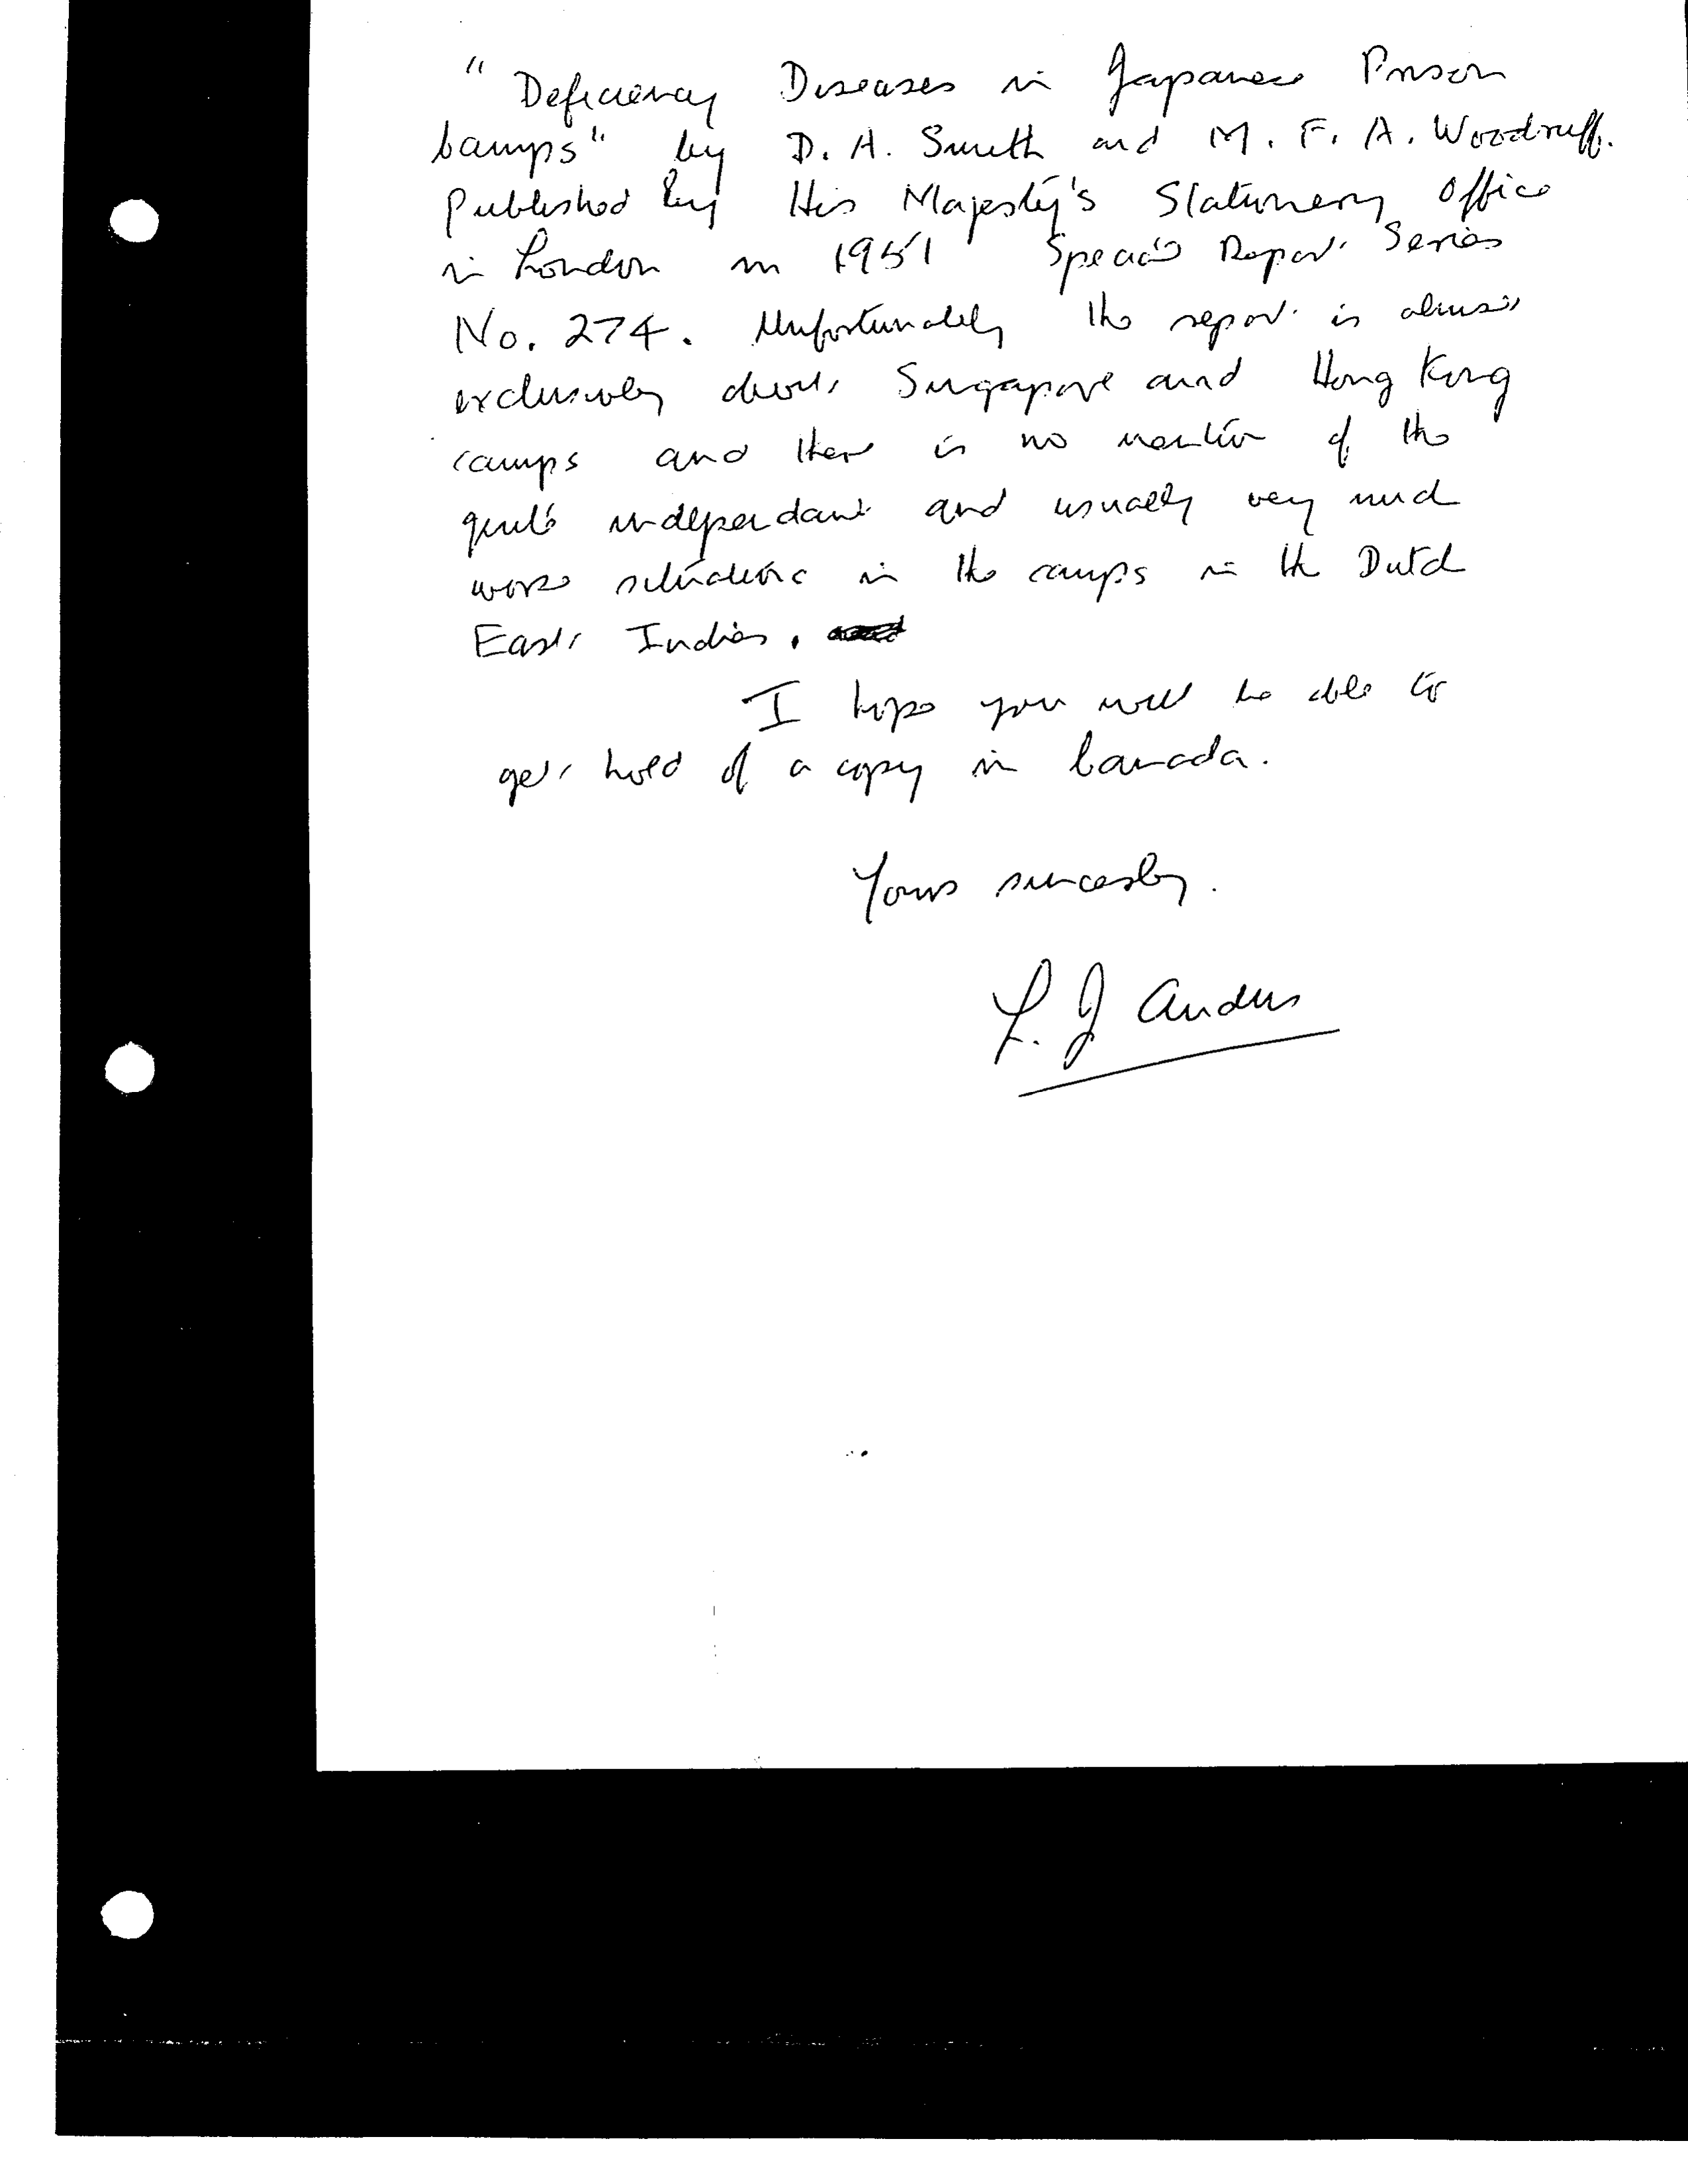 "Deficiency Diseases in Japanese Prison
Camps" by D. A. Smith and M. F. A. Woodruff.
Published by His Majesty's Stationery Office
in London in 1951 Special Report Series
No. 274. Unfortunately the report is almost
exclusively about Singapore and Hong Kong
camps and there is no mention of the
quite independant and usually very much
worse situations in the camps in the Dutch
East Indies.
I hope you will be able to
get hold of a copy in Canada.
Yours sincerely.
L. J Audus